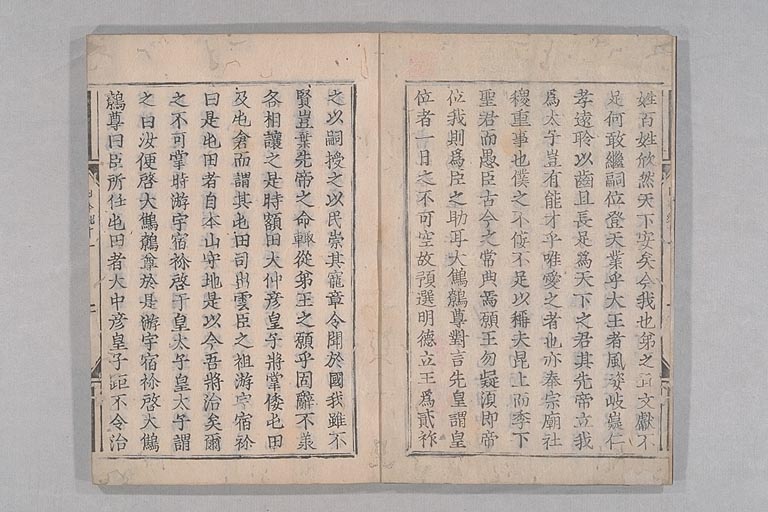 姓百姓欣然天下安矣今我也弟之且文獻不
足何敢繼嗣位登天業乎大王者風姿岐嶷仁
孝遠聆以齒且長足爲天下之君其先帝立我
爲太子豈有能才乎唯愛之者也亦奉宗廟社
稷重事也僕之不佞不足以稱夫昆上而季下
聖君而愚臣古今之常典焉願王勿疑須即帝
位我則爲臣之助耳大鷦鷯尊對言先皇謂皇
位者一日之不可空故預選明德立王爲貳祚
之以嗣授之以民崇其寵章令聞於國我雖不
賢豈棄先帝之命輙從弟王之願乎固辭不羕
各相讓之是時額田大仲彦皇子將掌倭屯田
及屯倉而謂其屯田司出雲臣之祖游宇宿祢
曰是屯田者自本山守地是以今吾將治矣爾
之不可掌時游宇宿祢啓于皇太子皇太子謂
之曰汝便啓大鷦鷯尊於是游宇宿祢啓大鷦
鷯尊曰臣所任屯田者大中彦皇子距不令治